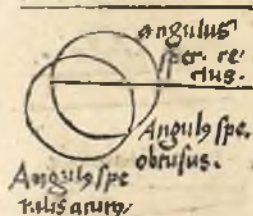 angulus
sper. re-
ctus.
Angulꝰ spe.
obtusus.
Angulꝰ spe
ralis acutꝰ